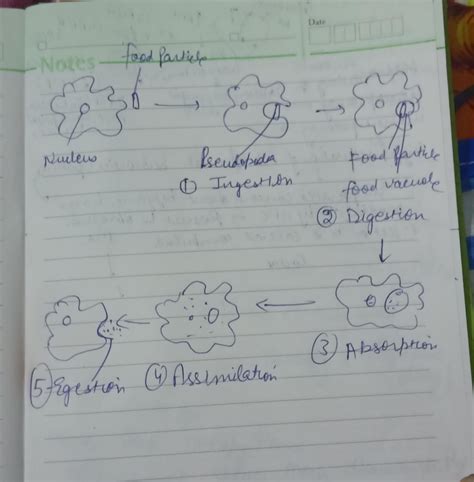 Date
Notes
Food Particle
Nucleus
Pseudopoda
① Ingestion
Food Particle
food vacuole
② Digestion
③ Absorption
④ Assimilation
⑤ Egestion